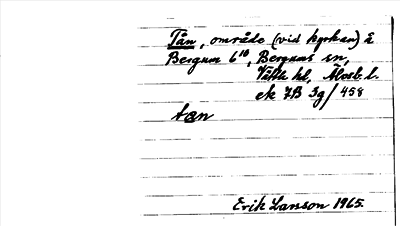 Tån, område (vid kyrkan) å
Bergum 6¹⁰, Bergums sn,
Vättle hd, Älvsb. l.
ek 7B 3g/458
tan
Erik Larsson 1965.